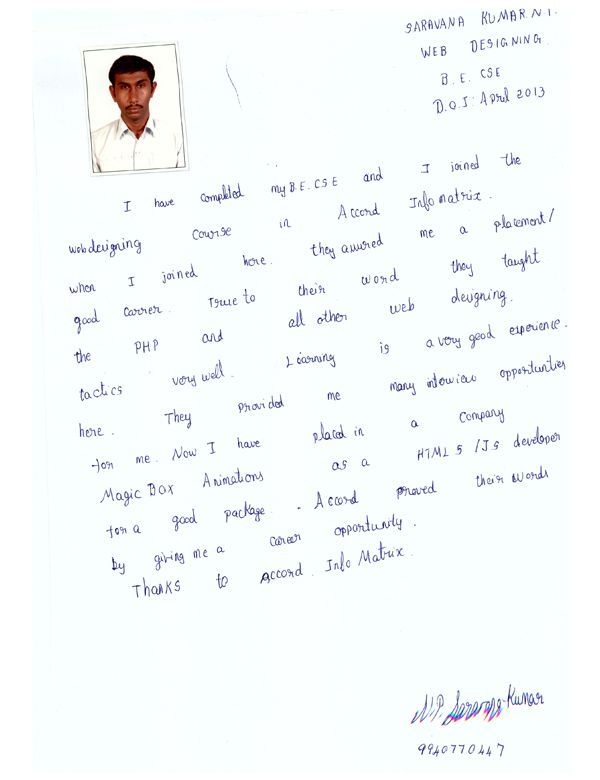 SARAVANA KUMAR.N.P.
WEB DESIGNING
B.E. CSE
D.O.J: April 2013
I have completed my B.E.CSE and I joined the
webdesigning Course in Accord Info matrix.
when I joined here. they assured me a placement/
good Carrer. True to their word they taught
the PHP and all other web designing.
tactics very well. Learning is a very good experience.
here. They provided me many interview opportunties
for me. Now I have placed in a Company
Magic Box Animations as a HTML 5 /JS developer
for a good package. Accord proved their words
by giving me a career opportunity.
Thanks to Accord Info Matrix.
N.P. Saravana Kumar
9940770447